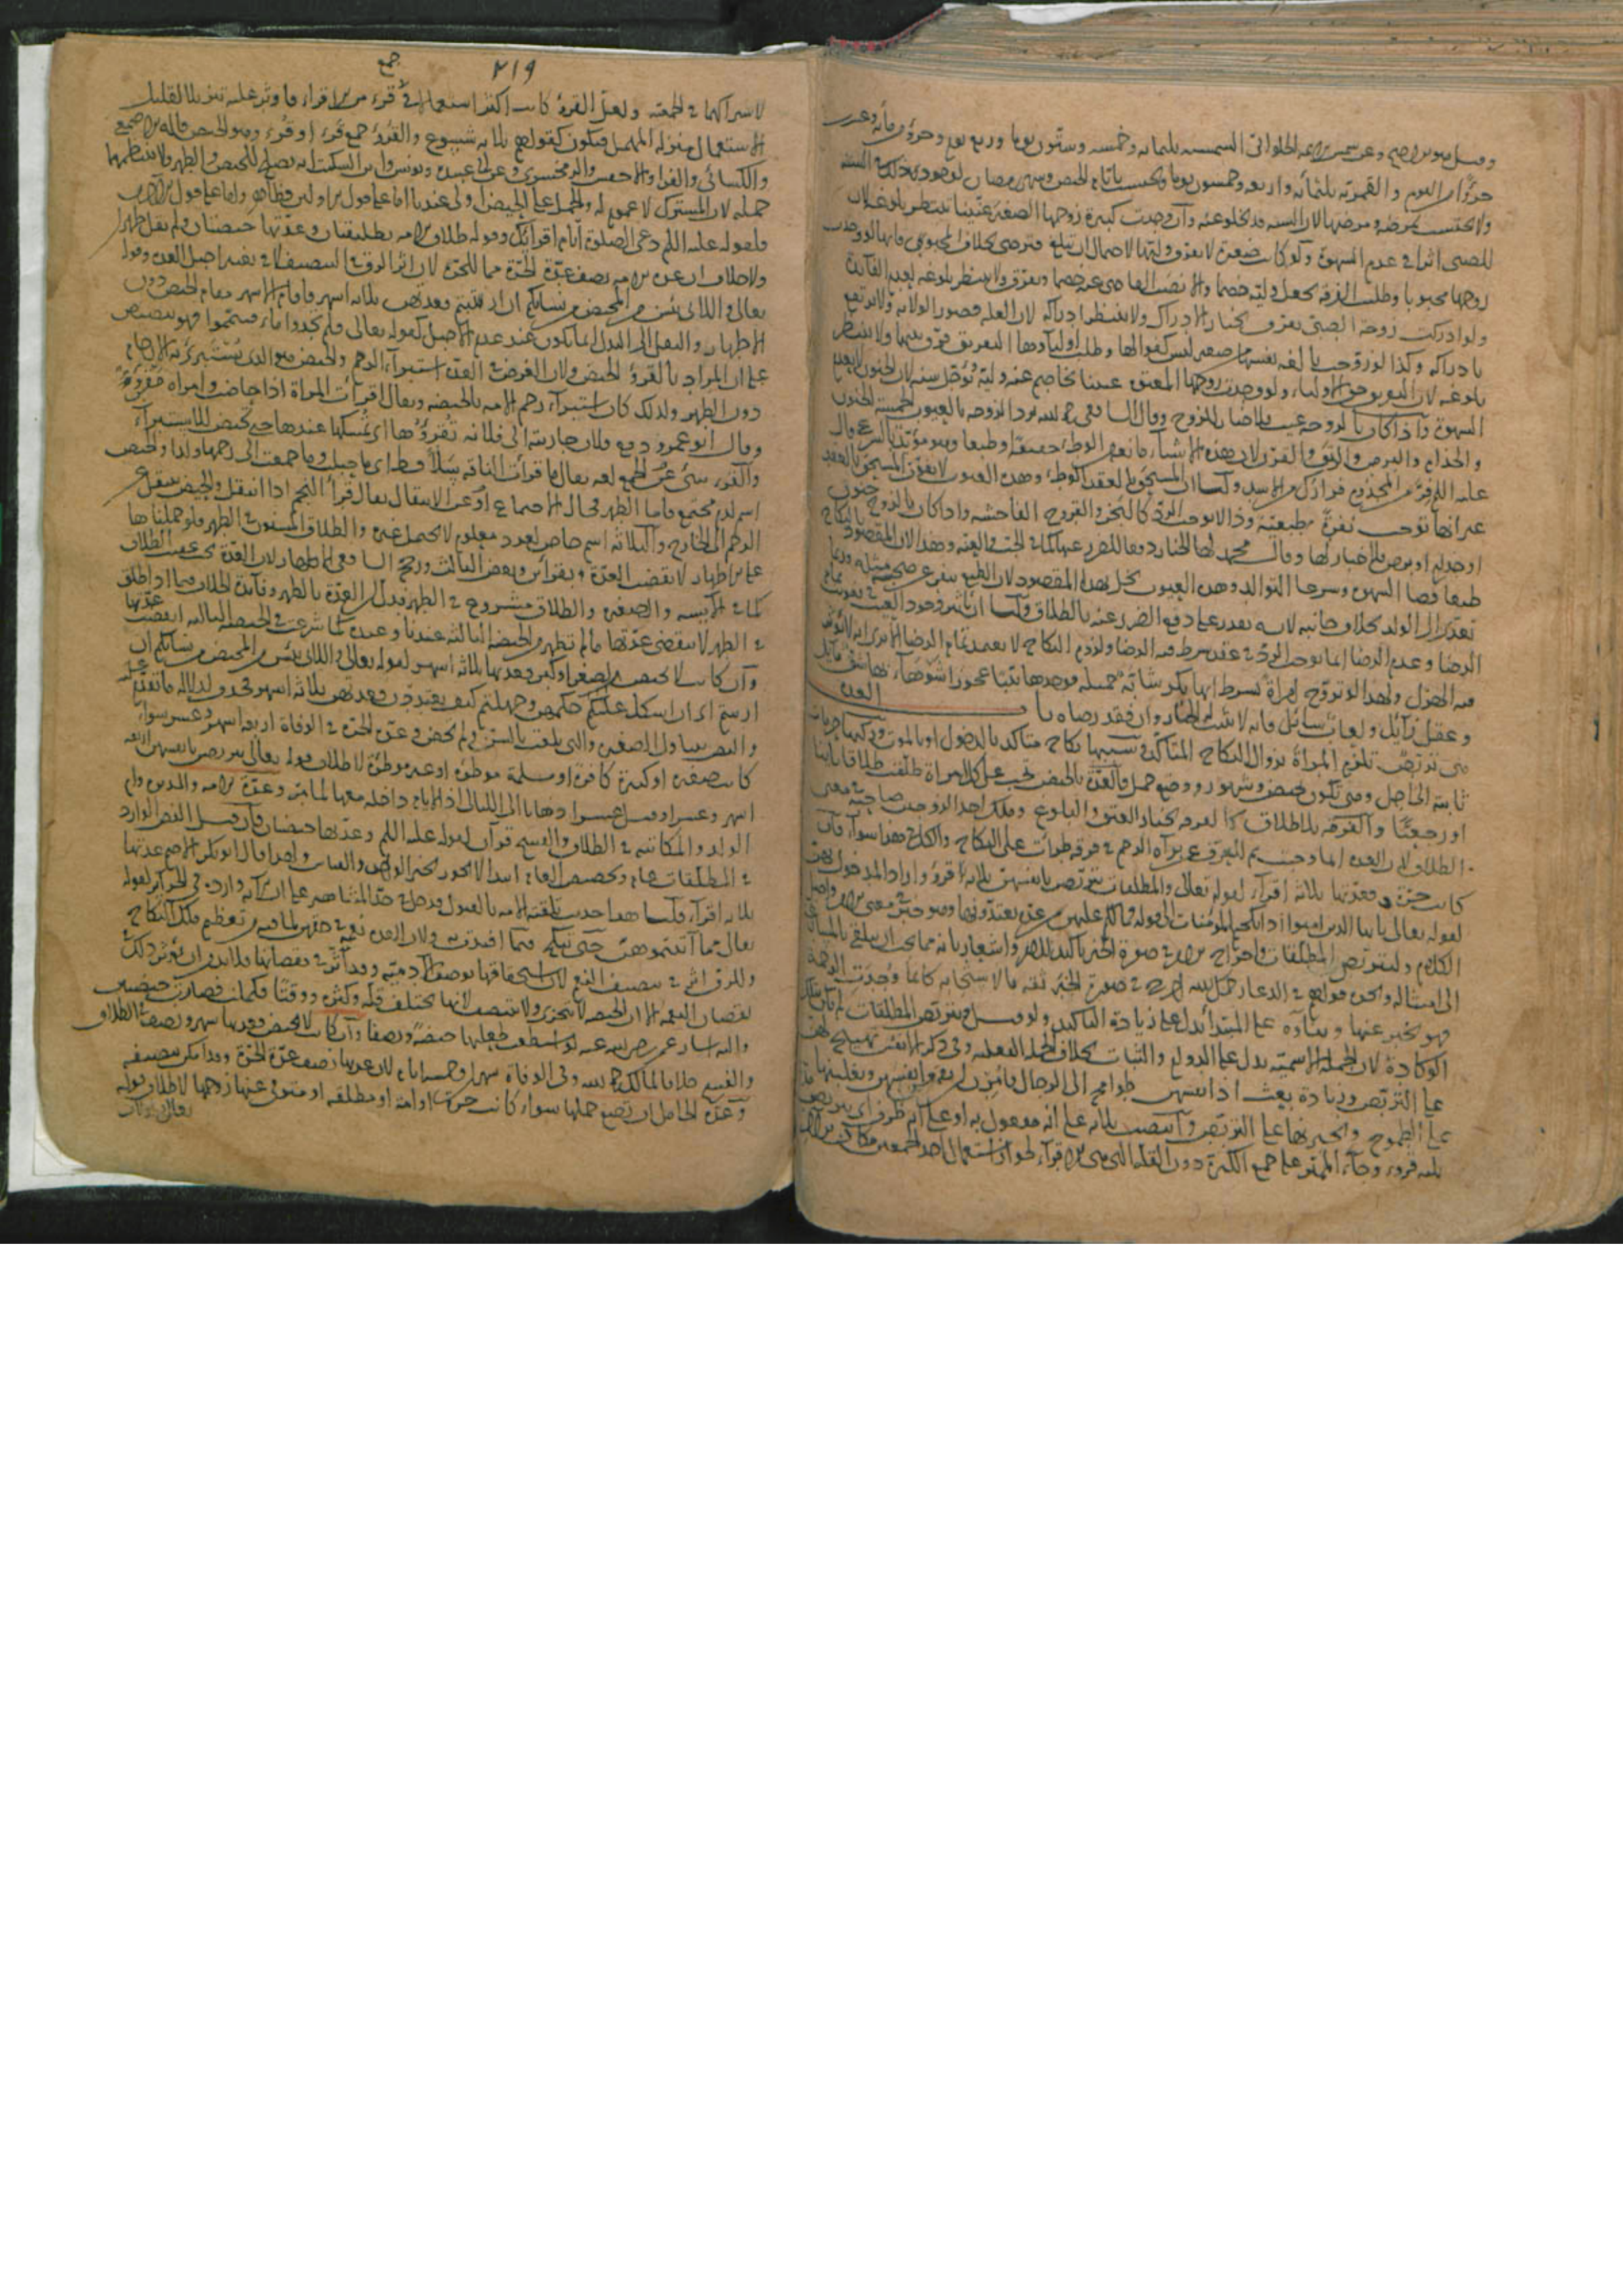 وقيل هو الاصح وعن شمس الائمة الحلواني الشمسية ثلثمائة وخمسة وستون يوما وربع يوم وجزؤ من مائة وعشرين
جزؤا من اليوم والقمرية ثلثمائة واربعة وخمسون يوما ويحتسب بايام الحيض وشهر رمضان لوجود ذلك في السنة
ولا يحتسب بمرضه ومرضها لان السنة قد تخلو عنه وان وجدت كبيرة زوجها الصغير عنينا ينتظر بلوغه لان
للصبي اثرا في عدم الشهوة ولو كانت صغيرة لا يفرق وليها لاحتمال ان تبلغ فترضى بخلاف المجبوب فانها لو وجدت
زوجها مجبوبا وطلب الفرقة يجعل وليه خصما والا نصب القاضي عنه خصما ويفرق ولا ينتظر بلوغه لعدم الفائدة
ولو ادركت زوجة الصبي بخيار الادراك ولا ينتظر ادراكه لان العلة قصور الولاية ولا يرتفع
بادراكه وكذا لو زوجت بالغة نفسها من صغير ليس كفوا لها وطلب اولياؤها التفريق فرق بينهما ولا ينتظر
بلوغه لان التفريق حق الاولياء ولو وجدت زوجها المعتوه عنينا يخاصم عنه وليه ويؤجل سنة لان الجنون لا يعدم
الشهوة واذا كان بالزوجة عيب فلا خيار للزوج وقال الشافعي رحمه الله ترد الزوجة بالعيوب الخمسة الجنون
والجذام والبرص والرتق والقرن لان هذه الاشياء مانعة من الوطئ حقيقة او طبعا وهو مؤيد بالشرع قال
عليه السلام فر من المجذوم فرارك من الاسد ولنا ان المستحق بالعقد الوطئ وهذه العيوب لا تفوت المستحق بالعقد
غير انها توجب نفرة طبيعية وذا لا يوجب الرد كالبخر والقروح الفاحشة واذا كان بالزوج جنون
او جذام او برص فلا خيار لها وقال محمد لها الخيار دفعا للضرر عنها كما في الجب والعنة وهذا لان المقصود بالنكاح
طبعا قضاء الشهوة وشرعا التوالد وهذه العيوب تخل بهذا المقصود لان الطبع ينفر عن صحبة مثله وربما
تعدى الى الولد بخلاف جانبه لانه يقدر على دفع الضرر عنه بالطلاق
الرضا وعدم الرضا انما يوجب الرد في عقد شرط فيه الرضا ولزوم النكاح لا يعتمد تمام الرضا
مع الهزل ولهذا لو تزوج امراة بشرط انها بكر شابة جميلة فوجدها ثيبا عجوزا شوهاء لها شق مائل
وعقل زائل ولعاب سائل فانه لا يثبت له الخيار وان فقد رضاه باب العدة
هي تربص تلزم المراة بزوال النكاح المتاكد وسببها نكاح متاكد بالدخول او بالموت وركنها حرمات
ثابتة الى اجل وهي تكون بحيض وشهور ووضع حمل فالعدة بالحيض تجب على كل امراة طلقت طلاقا بائنا
او رجعيا والفرقة بلا طلاق كالفرقة بخيار العتق والبلوغ وملك احد الزوجين صاحبه في معنى
الطلاق لان العدة انما وجبت للتعرف عن براءة الرحم في فرقة طرأت على النكاح والكل في هذا سواء فان
كانت حرة فعدتها ثلاثة اقراء لقوله تعالى والمطلقات يتربصن بانفسهن ثلاثة قروء واراد المدخول بهن
لقوله تعالى يا ايها الذين امنوا اذا نكحتم المؤمنات الى قوله فما لكم عليهن من عدة تعتدونها وهو خبر في معنى الامر واصل
الكلام وليتربص المطلقات واخراج الامر في صورة الخبر تاكيد للامر واشعار بانه مما يجب ان يتلقى بالمسارعة
الى امتثاله ونحوه قولهم في الدعاء رحمك الله اخرجه في صورة الخبر ثقة بالاستجابة كانما وجدت الرحمة
فهو يخبر عنها وبناؤه على المبتدا يدل على زيادة التاكيد ولو قيل ويتربص المطلقات لم يكن بتلك
الوكادة لان الجملة الاسمية تدل على الدوام والثبات بخلاف الجملة الفعلية وفي ذكر الانفس تهييج لهن
على التربص وزيادة بعث اذ انفسهن طوامح الى الرجال فامرن ان يقمعن انفسهن ويغلبنها
على الطموح ويجبرنها على التربص وانتصب ثلاثة على انه مفعول به او على انه ظرف اي يتربصن مدة
ثلاثة قروء وجاء المميز على جمع الكثرة دون القلة التي هي الاقراء لجواز استعمال احد الجمعين مكان الاخر
٢١٩
جمع
لاشتراكهما في الجمعية ولعل القروء كانت اكثر استعمالا في جمع قرء من الاقراء فاوثر عليه تنزيلا للقليل
الاستعمال منزلة المهمل فيكون كقولهم ثلاثة شسوع والقروء جمع قرء او قرء وهو الحيض قاله الاصمعي
والكسائي والفراء والاخفش والزمخشري وعن ابي عبيدة ويونس وابن السكيت انه يصلح للحيض والطهر ولا ينتظمهما
جملة لان المشترك لا عموم له والحمل على الحيض اولى عندنا
فلقوله عليه السلام دعي الصلوة ايام اقرائك وقوله طلاق الامة تطليقتان وعدتها حيضتان ولم يقل طهران
ولا خلاف ان عدة الامة نصف عدة الحرة
تعالى واللائي يئسن من المحيض من نسائكم ان ارتبتم فعدتهن ثلاثة اشهر فاقام الاشهر مقام الحيض دون
الاطهار والنقل الى البدل انما يكون عند عدم الاصل كقوله تعالى فلم تجدوا ماء فتيمموا فهو تنصيص
على ان المراد بالقروء الحيض ولان الغرض في العدة استبراء الرحم والحيض هو الذي يستبرئ به الارحام
دون الطهر ولذلك كان استبراء رحم الامة بالحيضة ويقال اقرأت المراة اذا حاضت وامراة مقرئ
وقال ابو عمرو دفع فلان جاريته الى فلانة تقرؤها اي تمسكها عندها حتى تحيض للاستبراء
والقرء ينبئ عن الجمع لغة يقال ما قرأت الناقة سلا قط اي ما حبلت وما جمعت الى رحمها ولدا والحيض
اسم لدم مجتمع فاما الطهر فحال الاجتماع او عن الانتقال يقال قرأ النجم اذا انتقل والحيض ينتقل من
الرحم الى الخارج والثلاثة اسم خاص لعدد معلوم لا يحتمل غيره والطلاق المسنون في الطهر فلو حملناها
على الاطهار لانقضت العدة بقرأين وبعض الثالث ورجح الشافعي الاطهار لان العدة تجب عقيب الطلاق
كما في الآيسة والصغيرة والطلاق مشروع في الطهر فدل ان العدة بالطهر وفائدة الخلاف فيما اذا طلق
في الطهر لا تنقضي عدتها ما لم تطهر من الحيضة الثالثة عندنا وعنده كما شرعت في الحيضة الثالثة انقضت عدتها
وان كانت لا تحيض لصغر او كبر فعدتها ثلاثة اشهر لقوله تعالى واللائي يئسن من المحيض من نسائكم ان
ارتبتم اي ان اشكل عليكم حكمهن وجهلتم كيف يعتددن فعدتهن ثلاثة اشهر فحذف لدلالة ما تقدم عليه
والنص يتناول الصغيرة والتي بلغت بالسن ولم تحض وعدة الحرة في الوفاة اربعة اشهر وعشر سواء
كانت صغيرة او كبيرة كافرة او مسلمة موطوءة او غير موطوءة لاطلاق قوله تعالى يتربصن بانفسهن اربعة
اشهر وعشرا
الولد والمكاتبة في الطلاق والفسخ قرآن لقوله عليه السلام وعدتها حيضتان فان قيل النص الوارد
في المطلقات عام وتخصيص العام ابتداء لا يجوز بخبر الواحد والقياس
ثلاثة اقراء قلنا هذا حديث تلقته الامة بالقبول فدخل في حد المشاهير على ان الآية واردة في الحرائر لقوله
تعالى مما آتيتموهن حتى تنكح فيما افتدت به ولان العدة نعمة في حقهن لما فيه من تعظيم ملك النكاح
وللرق اثر في تنصيف النعم لان استحقاقها بوصف الآدمية وقد اثر في نقصانها فلا بد وان يؤثر ذلك في
نقصان النعمة الا ان الحيضة لا تتجزى ولا تتنصف لانها تختلف قلة وكثرة ووقتا فكملت فصارت حيضتين
واليه اشار عمر رضي الله عنه لو استطعت لجعلتها حيضة ونصفا وان كانت لا تحيض فعدتها شهر ونصف في الطلاق
والفسخ خلافا لمالك رحمه الله وفي الوفاة شهران وخمسة ايام لان عدتها نصف عدة الحرة وقد امكن تنصيفه
وعدة الحامل ان تضع حملها سواء كانت حرة او امة او مطلقة او متوفى عنها زوجها لاطلاق قوله
تعالى واولات